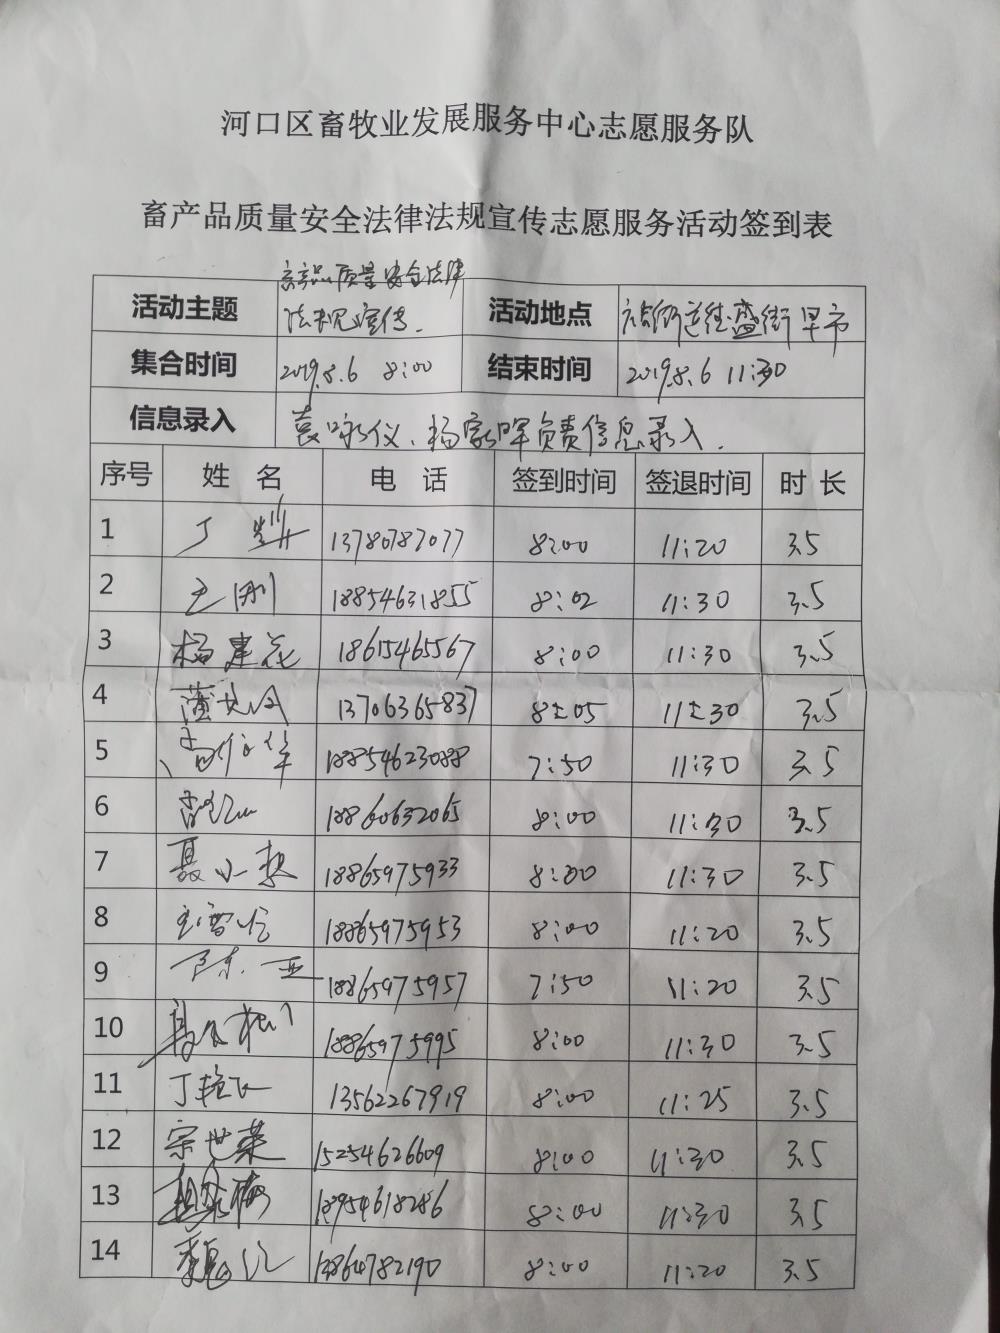 河口区畜牧业发展服务中心志愿服务队
畜产品质量安全法律法规宣传志愿服务活动签到表
活动主题 畜产品质量安全法律法规宣传. 活动地点 街道 盛街早市
集合时间 2019.8.6 8:00 结束时间 2019.8.6 11:30
信息录入 袁咏仪、杨家晖负责信息录入.
序号 姓 名 电 话 签到时间 签退时间 时 长
1 丁 13780787077 8:00 11:20 3.5
2 王刚 18854631855 8:02 11:30 3.5
3 杨建花 18615465567 8:00 11:30 3.5
4 13706365837 8:05 11:30 3.5
5 18854623088 7:50 11:30 3.5
6 18860632065 8:00 11:30 3.5
7 聂小 18865975933 8:00 11:30 3.5
8 18865975953 8:00 11:20 3.5
9 陈亚 18865975957 7:50 11:20 3.5
10 18865975995 8:00 11:30 3.5
11 丁艳飞 13562267919 8:00 11:25 3.5
12 宗世荣 15254626609 8:00 11:30 3.5
13 18954618286 8:00 11:30 3.5
14 魏 13864782190 8:00 11:20 3.5